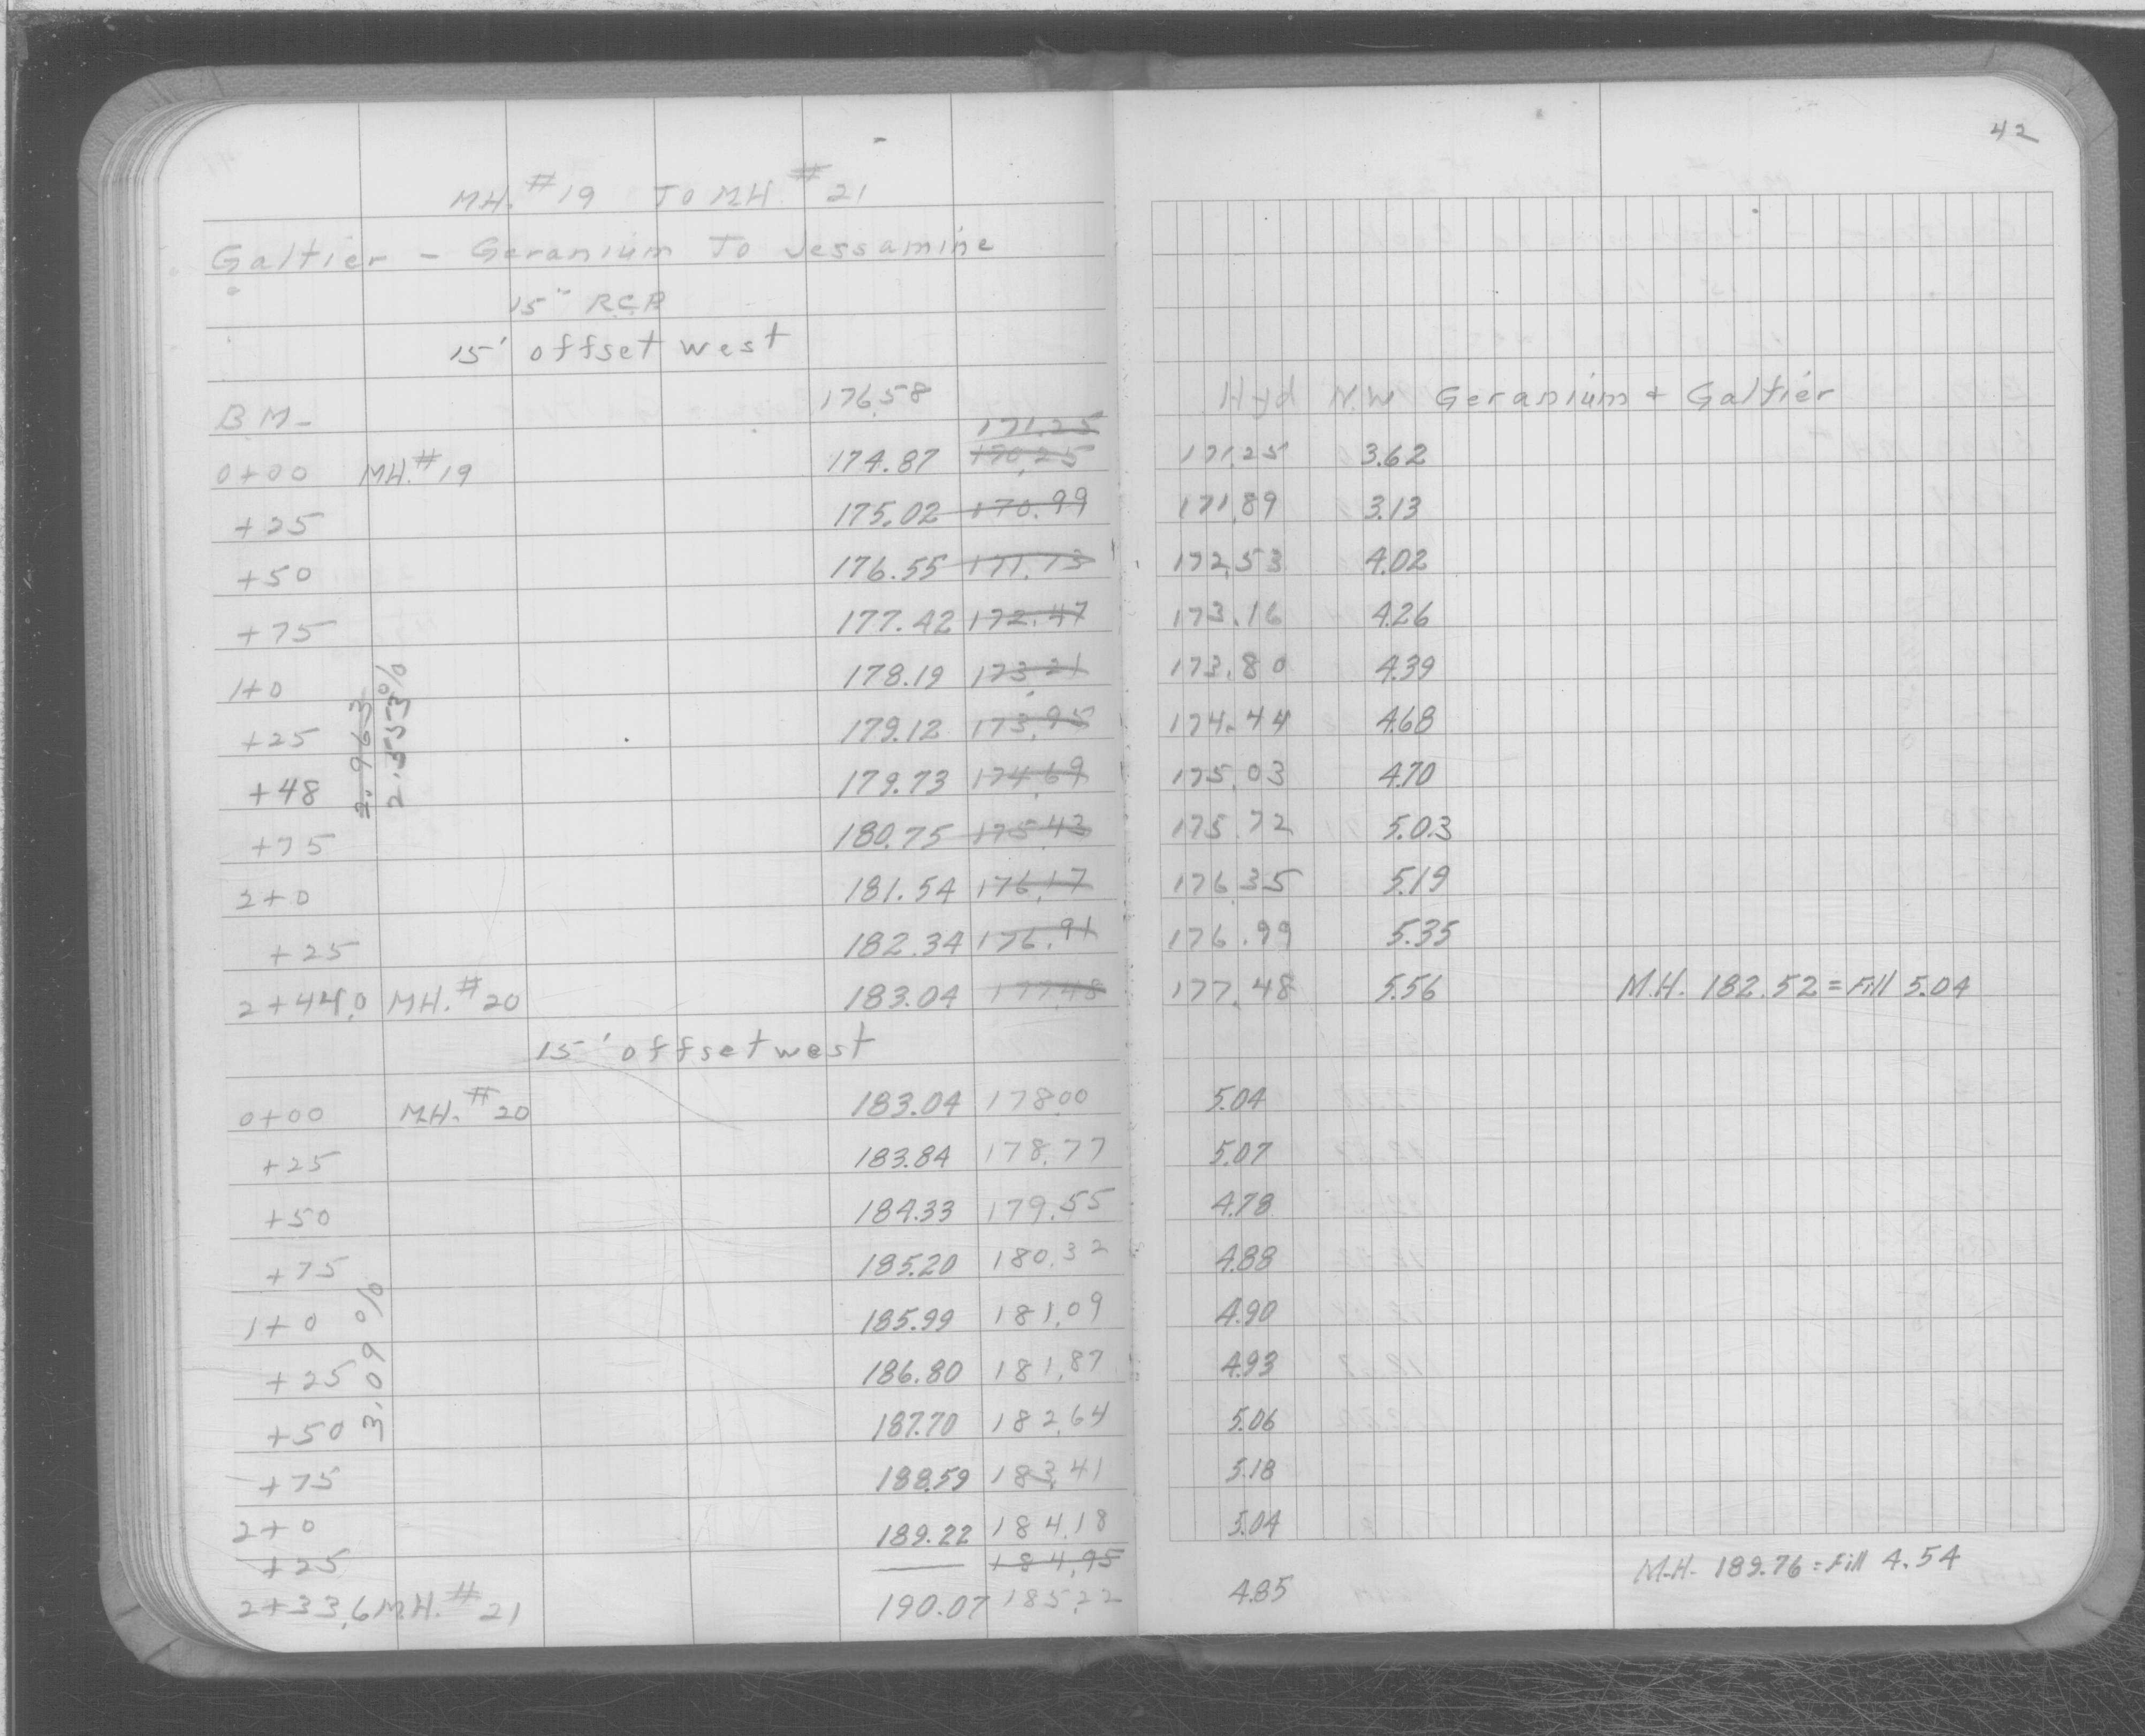 42
MH. #19 TO MH. #21
Galtier - Geranium To Jessamine
15" RCP
15' offset west
BM- 176.58 Hyd N.W Geranium + Galtier
171.25
0+00 MH.#19 174.87 170.25 171.25 3.62
+25 175.02 170.99 171.89 3.13
+50 176.55 171.73 172.53 4.02
+75 177.42 172.47 173.16 4.26
1+0 178.19 173.21 173.80 4.39
+25 179.12 173.95 174.44 4.68
+48 179.73 174.69 175.03 4.70
+75 180.75 175.43 175.72 5.03
2+0 181.54 176.17 176.35 5.19
+25 182.34 176.91 176.99 5.35
2+44.0 MH.#20 183.04 177.48 177.48 5.56 M.H. 182.52 = Fill 5.04
2.963
2.553%
15' offset west
0+00 MH.#20 183.04 178.00 5.04
+25 183.84 178.77 5.07
+50 184.33 179.55 4.78
+75 185.20 180.32 4.88
1+0 185.99 181.09 4.90
+25 186.80 181.87 4.93
+50 187.70 182.64 5.06
+75 188.59 183.41 5.18
2+0 189.22 184.18 5.04
+25 — 184.95
2+33.6 MH.#21 190.07 185.22 4.85 M.H. 189.76 = Fill 4.54
3.09%